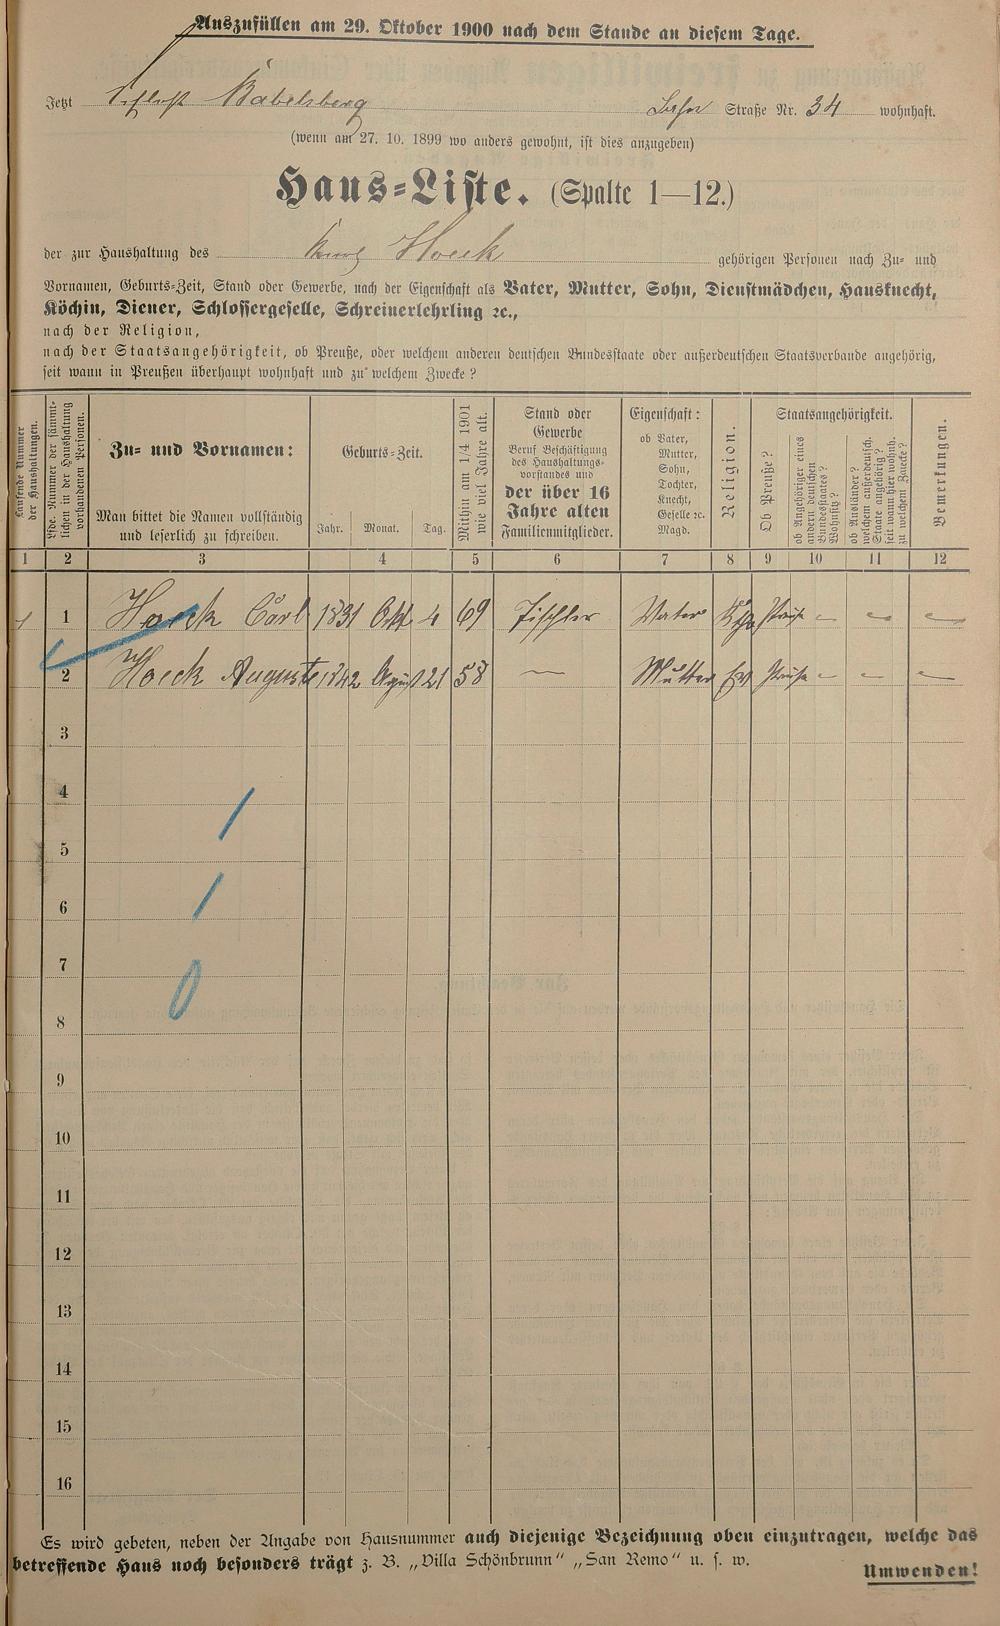 Auszufüllen am 29. Oktober 1900 nach dem Stande an diesem Tage.
Jetzt Schloß Babelsberg Straße Nr. 34 wohnhaft.
(wenn am 27. 10. 1899 wo anders gewohnt, ist dies anzugeben)
Haus-Liste. (Spalte 1—12.)
der zur Haushaltung des Hoeck gehörigen Personen nach Zu- und
Vornamen, Geburts-Zeit, Stand oder Gewerbe, nach der Eigenschaft als Vater, Mutter, Sohn, Dienstmädchen, Hausknecht,
Köchin, Diener, Schlossergeselle, Schreinerlehrling ꝛc.,
nach der Religion,
nach der Staatsangehörigkeit, ob Preuße, oder welchem anderen deutschen Bundesstaate oder außerdeutschen Staatsverbande angehörig,
seit wann in Preußen überhaupt wohnhaft und zu welchem Zwecke?
Laufende Nummer der Haushaltungen.
Lfde. Nummer der sämmtlichen in der Haushaltung vorhandenen Personen.
Zu- und Vornamen:
Man bittet die Namen vollständig
und leserlich zu schreiben.
Geburts-Zeit.
Jahr. Monat. Tag.
Mithin am 1/4 1901 wie viel Jahre alt.
Stand oder
Gewerbe
Beruf Beschäftigung
des Haushaltungs-
vorstandes und
der über 16
Jahre alten
Familienmitglieder.
Eigenschaft:
ob Vater,
Mutter,
Sohn,
Tochter,
Knecht,
Geselle ꝛc.
Magd.
Religion.
Staatsangehörigkeit.
Ob Preuße?
ob Angehöriger eines andern deutschen Bundesstaates? Wohnsitz?
ob Ausländer? welchem außerdeutsch. Staate angehörig? seit wann hier wohnh. zu welchem Zwecke?
Bemerkungen.
1 2 3 4 5 6 7 8 9 10 11 12
1 1 Hoeck Carl 1831 Okt 4 69 Tischler Vater Kth Preuße – – –
2 Hoeck Auguste 1842 August 21 58 — Mutter Ev Preuße – – –
3
4
5
6
7
8
9
10
11
12
13
14
15
16
Es wird gebeten, neben der Angabe von Hausnummer auch diejenige Bezeichnung oben einzutragen, welche das
betreffende Haus noch besonders trägt z. B. „Villa Schönbrunn“ „San Remo“ u. s. w.
Umwenden!